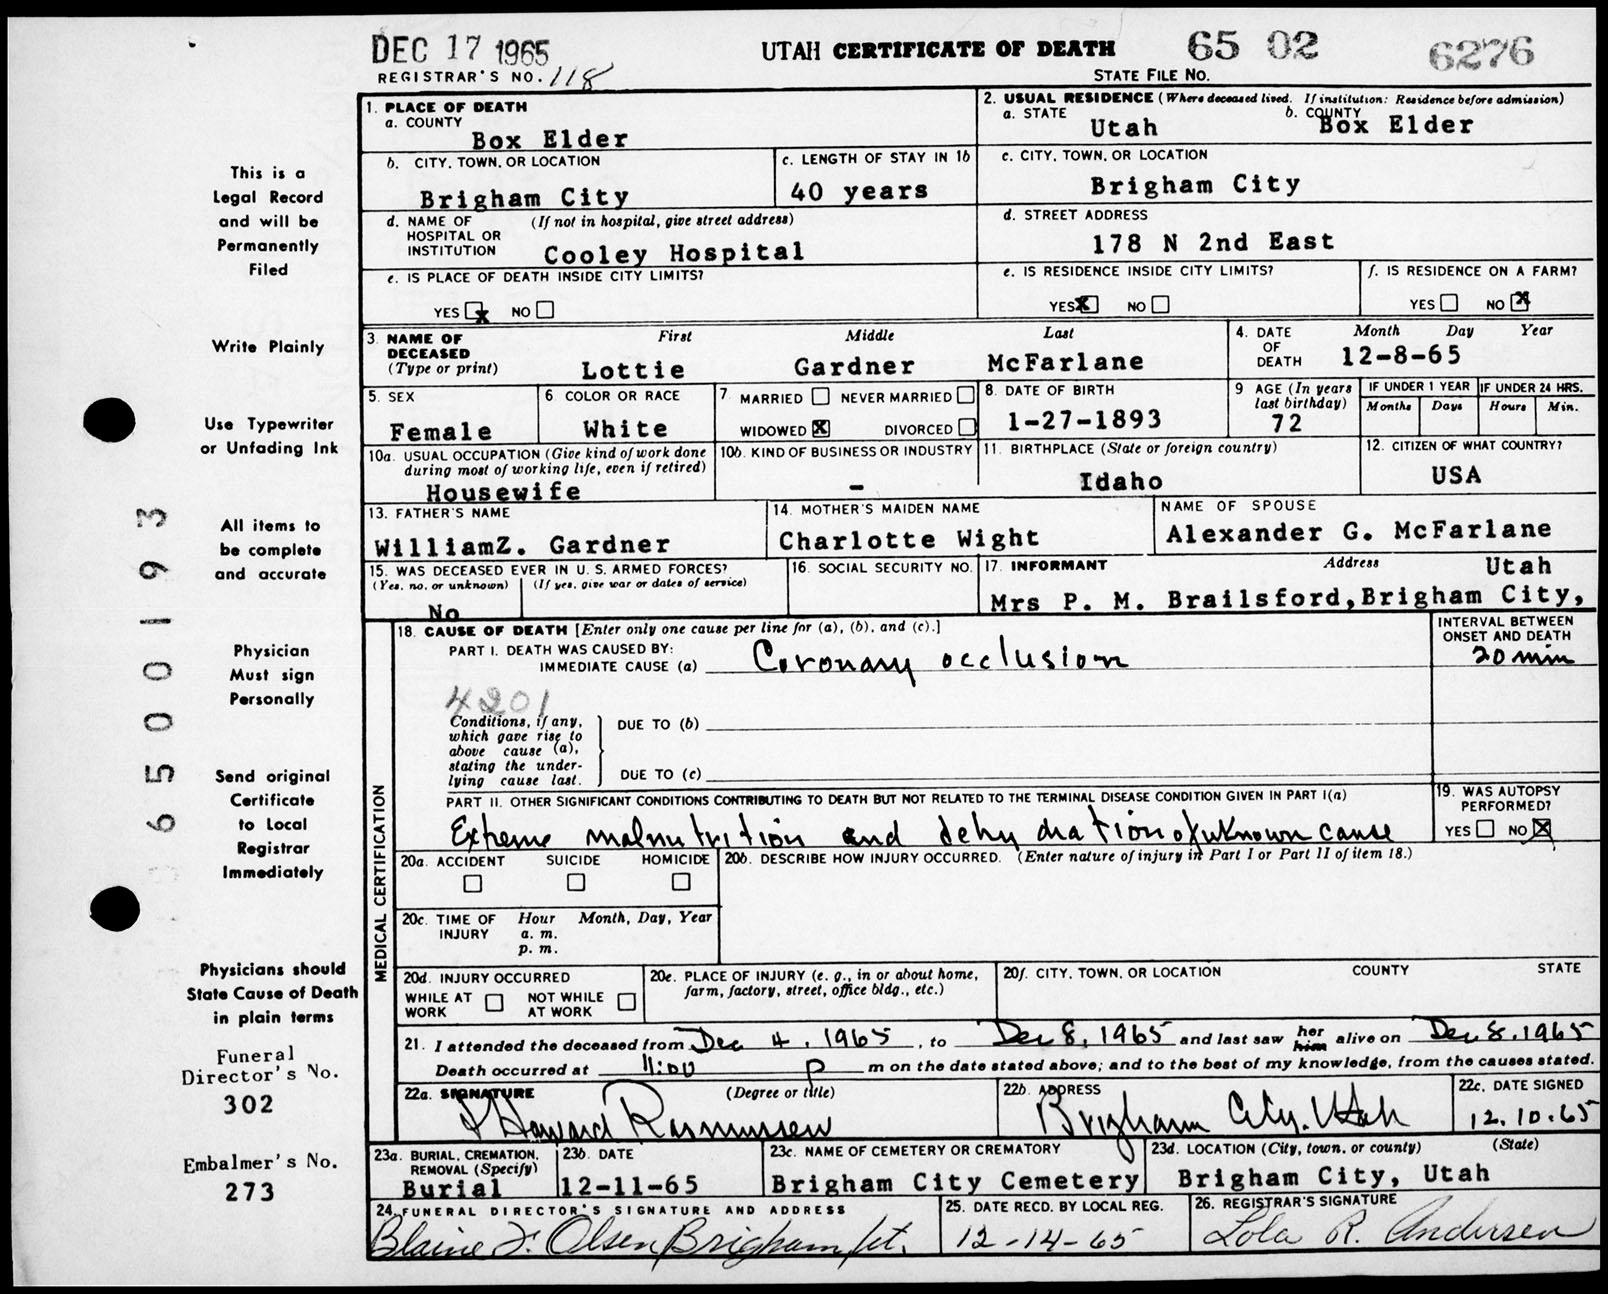 DEC 17 1965
UTAH CERTIFICATE OF DEATH 65 02 6276
REGISTRAR'S NO. 118
STATE FILE No.
1. PLACE OF DEATH
a. COUNTY
Box Elder
2. USUAL RESIDENCE (Where deceased lived. If institution: Residence before admission)
a. STATE b. COUNTY
Utah Box Elder
b. CITY, TOWN, OR LOCATION
Brigham City
c. LENGTH OF STAY IN 1b
40 years
c. CITY, TOWN, OR LOCATION
Brigham City
d. NAME OF HOSPITAL OR INSTITUTION (If not in hospital, give street address)
Cooley Hospital
d. STREET ADDRESS
178 N 2nd East
e. IS PLACE OF DEATH INSIDE CITY LIMITS?
YES x NO
e. IS RESIDENCE INSIDE CITY LIMITS?
YES X NO
f. IS RESIDENCE ON A FARM?
YES NO X
3. NAME OF DECEASED (Type or print)
First Middle Last
Lottie Gardner McFarlane
4. DATE OF DEATH Month Day Year
12-8-65
5. SEX
Female
6. COLOR OR RACE
White
7. MARRIED NEVER MARRIED
WIDOWED X DIVORCED
8. DATE OF BIRTH
1-27-1893
9 AGE (In years last birthday)
72
IF UNDER 1 YEAR IF UNDER 24 HRS.
Months Days Hours Min.
10a. USUAL OCCUPATION (Give kind of work done
during most of working life, even if retired)
Housewife
10b. KIND OF BUSINESS OR INDUSTRY
-
11. BIRTHPLACE (State or foreign country)
Idaho
12. CITIZEN OF WHAT COUNTRY?
USA
13. FATHER'S NAME
WilliamZ. Gardner
14. MOTHER'S MAIDEN NAME
Charlotte Wight
NAME OF SPOUSE
Alexander G. McFarlane
15. WAS DECEASED EVER IN U. S. ARMED FORCES?
(Yes, no, or unknown) (If yes, give war or dates of service)
No
16. SOCIAL SECURITY NO.
17. INFORMANT Address Utah
Mrs P. M. Brailsford,Brigham City,
18. CAUSE OF DEATH [Enter only one cause per line for (a), (b), and (c).]
INTERVAL BETWEEN
ONSET AND DEATH
PART I. DEATH WAS CAUSED BY:
IMMEDIATE CAUSE (a) Coronary occlusion 20 min
4201
Conditions, if any,
which gave rise to
above cause (a),
stating the under-
lying cause last.
DUE TO (b)
DUE TO (c)
PART II. OTHER SIGNIFICANT CONDITIONS CONTRIBUTING TO DEATH BUT NOT RELATED TO THE TERMINAL DISEASE CONDITION GIVEN IN PART I(a)
Extreme malnutrition and dehydration of unknown cause
19. WAS AUTOPSY
PERFORMED?
YES NO X
MEDICAL CERTIFICATION
20a. ACCIDENT SUICIDE HOMICIDE
20b. DESCRIBE HOW INJURY OCCURRED. (Enter nature of injury in Part I or Part II of item 18.)
20c. TIME OF INJURY Hour Month, Day, Year
a. m.
p. m.
20d. INJURY OCCURRED
WHILE AT WORK NOT WHILE AT WORK
20e. PLACE OF INJURY (e. g., in or about home,
farm, factory, street, office bldg., etc.)
20f. CITY, TOWN, OR LOCATION COUNTY STATE
21. I attended the deceased from Dec 4, 1965, to Dec 8, 1965 and last saw her him alive on Dec 8, 1965
Death occurred at 11:00 p m on the date stated above; and to the best of my knowledge, from the causes stated.
22a. SIGNATURE (Degree or title)
J Howard Rasmussen
22b. ADDRESS
Brigham City, Utah
22c. DATE SIGNED
12.10.65
23a. BURIAL, CREMATION,
REMOVAL (Specify)
Burial
23b. DATE
12-11-65
23c. NAME OF CEMETERY OR CREMATORY
Brigham City Cemetery
23d. LOCATION (City, town, or county) (State)
Brigham City, Utah
24. FUNERAL DIRECTOR'S SIGNATURE AND ADDRESS
Blaine Olsen Brigham Ut.
25. DATE RECD. BY LOCAL REG.
12-14-65
26. REGISTRAR'S SIGNATURE
Lola R. Andersen
This is a
Legal Record
and will be
Permanently
Filed
Write Plainly
Use Typewriter
or Unfading Ink
All items to
be complete
and accurate
Physician
Must sign
Personally
Send original
Certificate
to Local
Registrar
Immediately
Physicians should
State Cause of Death
in plain terms
Funeral
Director's No.
302
Embalmer's No.
273
6500193